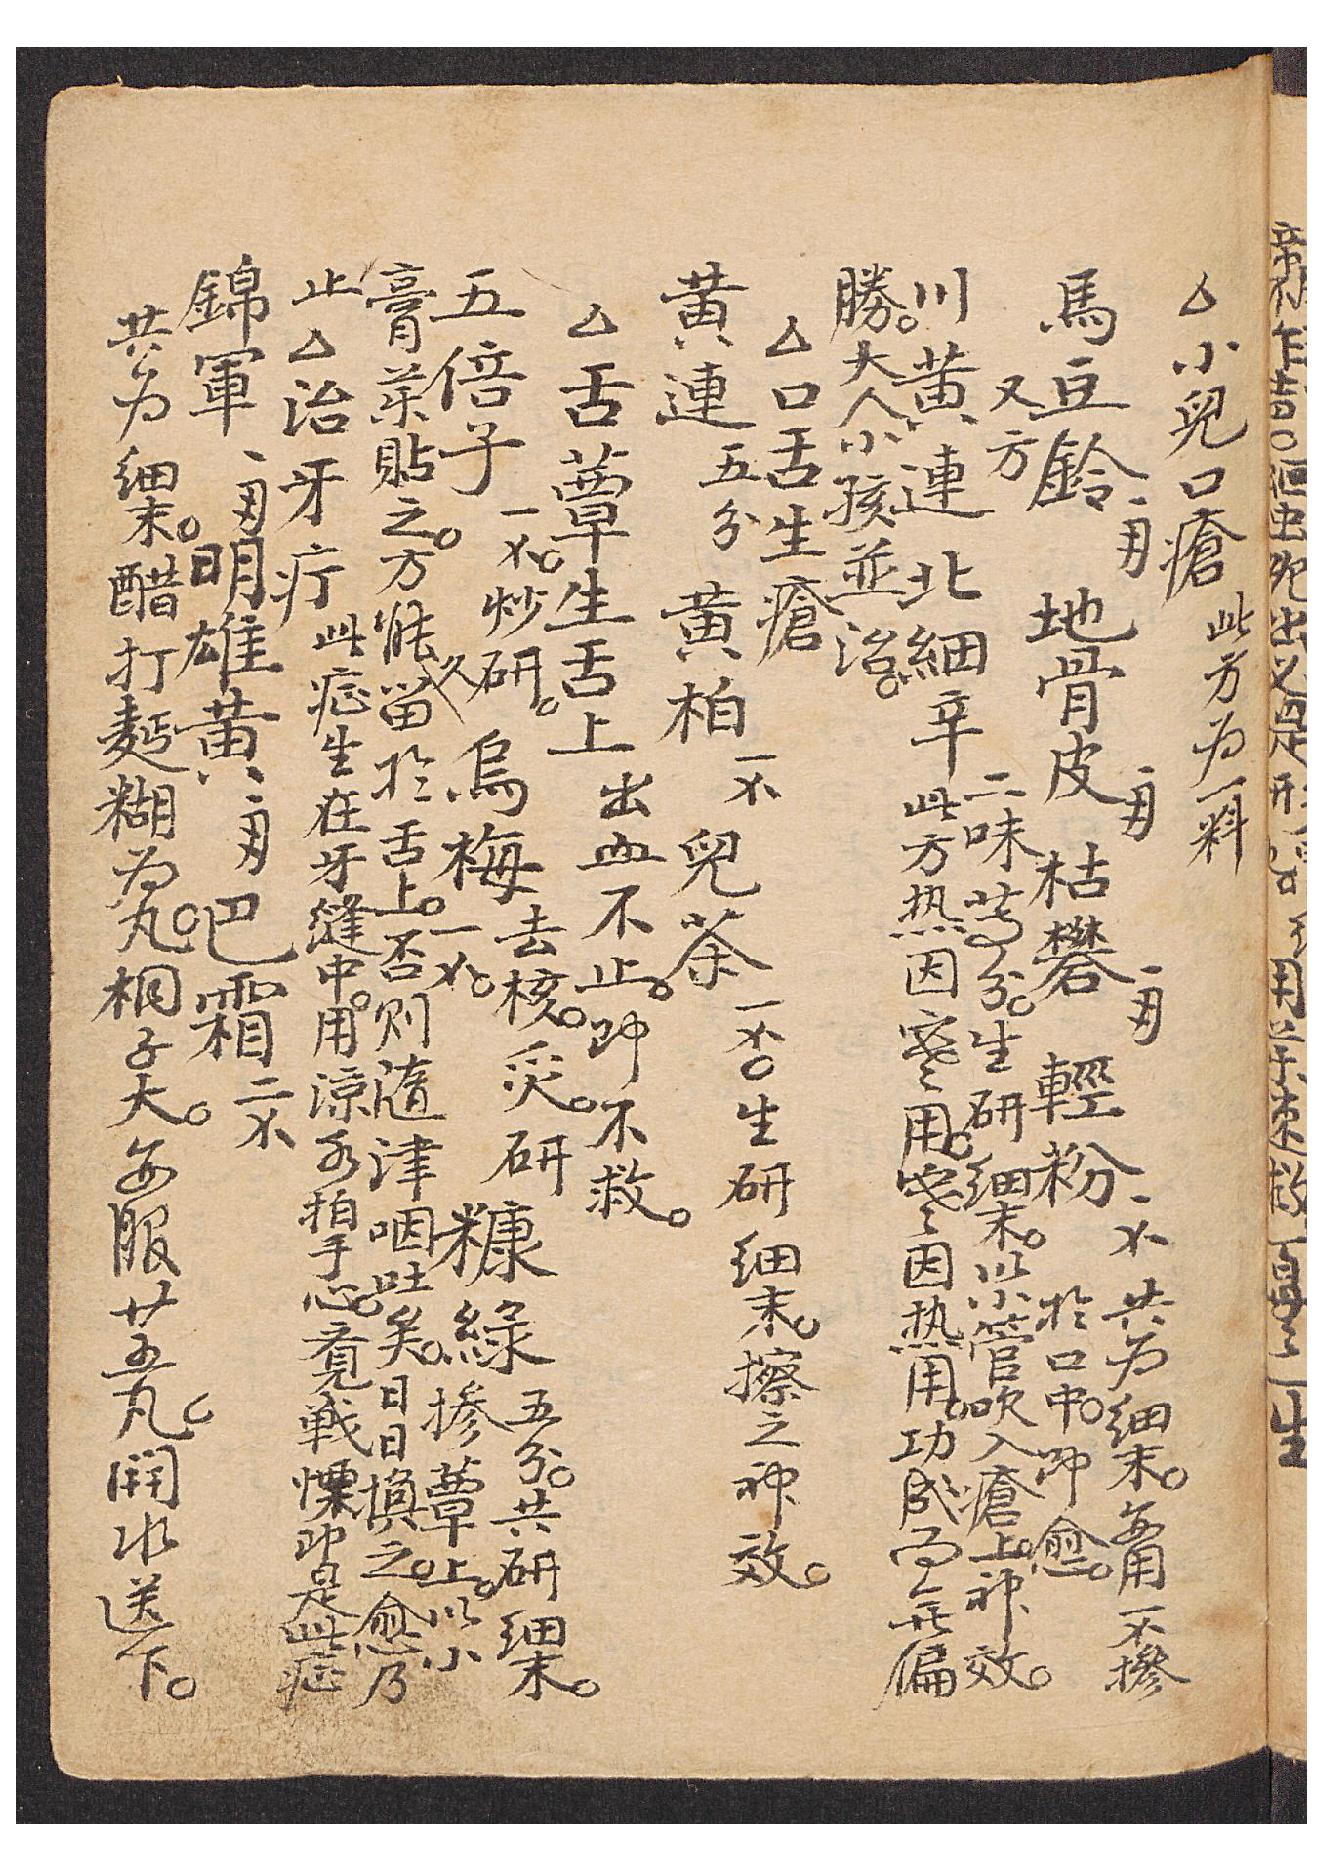 △小兒口瘡 此方为一料
馬豆鈴 一兩 地骨皮 一兩 枯礬 一兩 輕粉 一不 共为细末。每用一不摻
於口中。即愈。
又方
川黄連 北細辛 二味等分。生研细末。以小管吹入瘡上。神效。
此方热因寒用。寒因热用。功成而無偏
勝。大人小孩並治。
△口舌生瘡
黄連 五分 黄柏 一不 兒茶 一不。生研细末。擦之神效。
△舌蕈生舌上 出血不止。即不救。
五倍子 一不。炒研。烏梅 去核。炙。研 一不。糠綠 五分。共研细末。
摻蕈上。以小
膏藥貼之。方能久留於舌上。否则隨津咽吐矣。日日換之。愈乃
止
△治牙疔 此症生在牙縫中。用涼水拍手心。竟戰慄即是此症
錦軍 一兩 明雄黄 一兩 巴霜 二不
共为细末。醋打麪糊为丸。桐子大。每服廿五丸。開水送下。